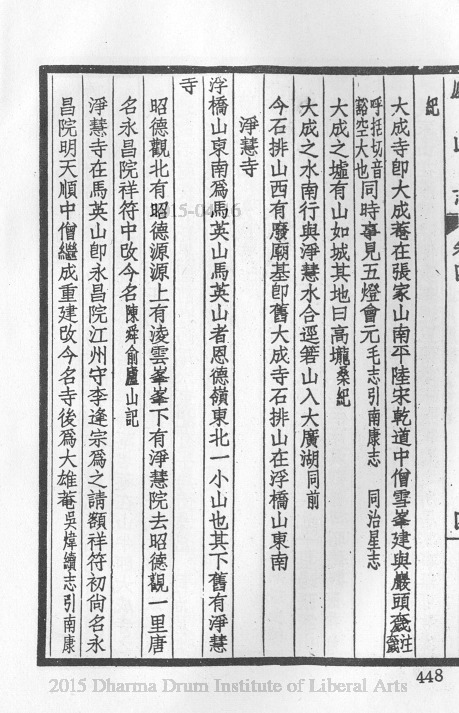 廬山志
卷四
紀
大成寺卽大成菴在張家山南平陸宋乾道中僧雲峯建與巖頭奯注奯
呼括切音豁空大也同時事見五燈會元毛志引南康志 同治星志
大成之墟有山如城其地曰高壠桑紀
大成之水南行與淨慧水合逕箬山入大廣湖同前
今石排山西有廢廟基卽舊大成寺石排山在浮橋山東南
淨慧寺
浮橋山東南爲馬英山馬英山者恩德嶺東北一小山也其下舊有淨慧
寺
昭德觀北有昭德源源上有淩雲峯峯下有淨慧院去昭德觀一里唐
名永昌院祥符中改今名陳舜俞廬山記
淨慧寺在馬英山卽永昌院江州守李逢宗爲之請額祥符初尙名永
昌院明天順中僧繼成重建改今名寺後爲大雄菴吳煒續志引南康
448
2015 Dharma Drum Institute of Liberal Arts